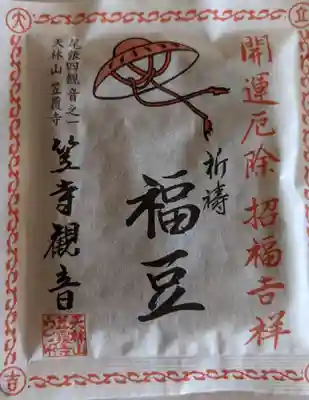 開運厄除 招福吉祥
祈祷
福豆
尾張四観音之一
天林山 笠覆寺
笠寺観音
天林山
大
吉